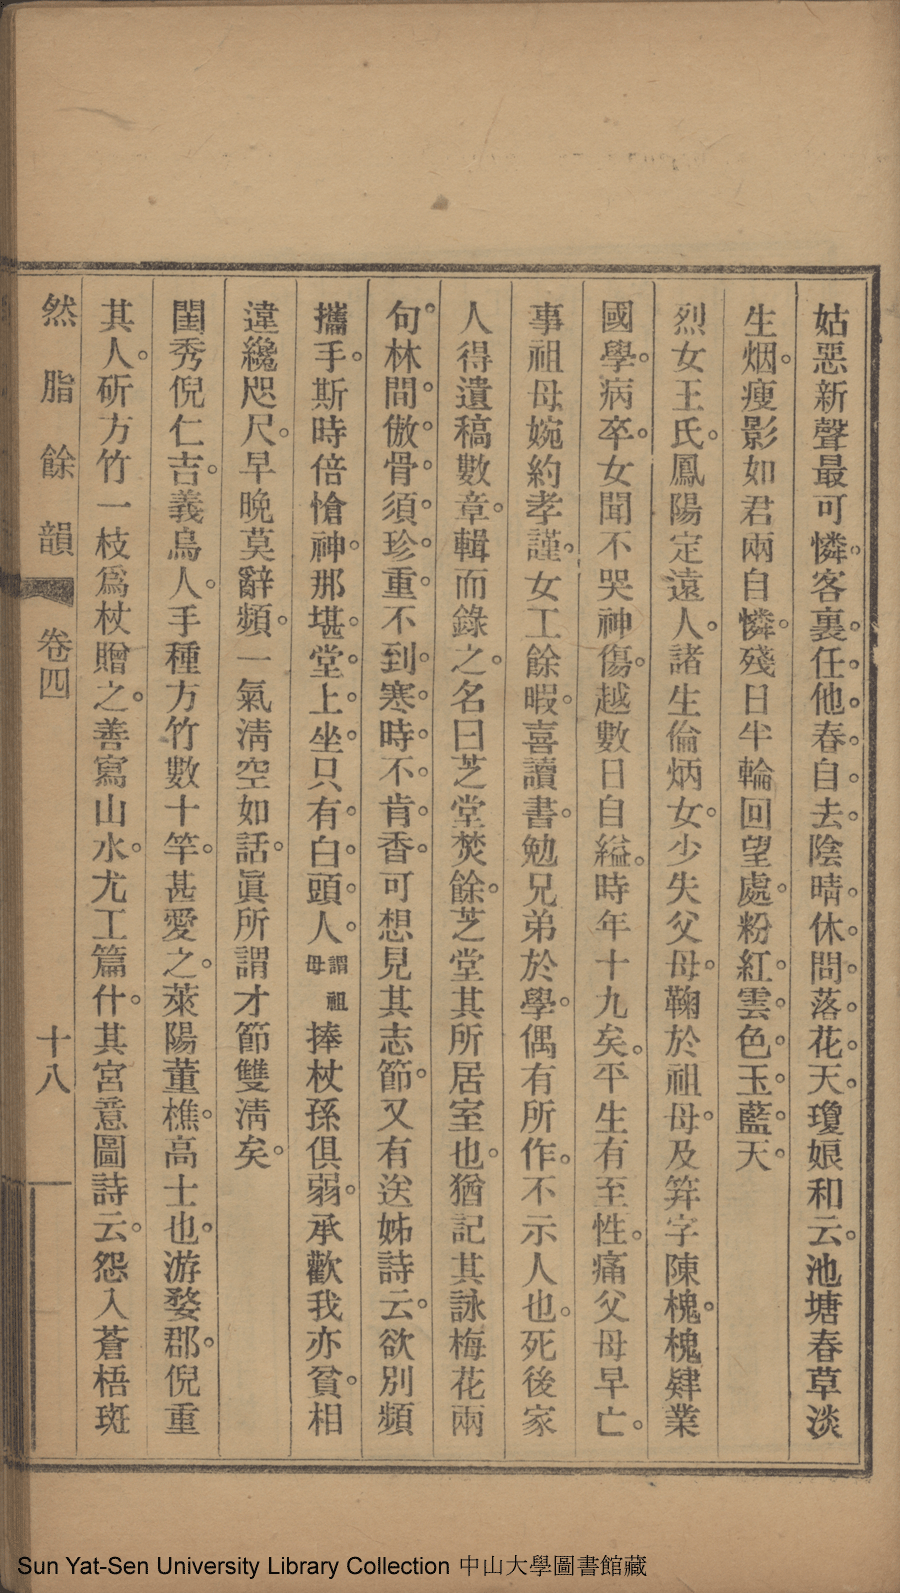 姑惡新聲最可憐。客裏。任。他。春。自。去。陰晴。休。問。落。花。天。瓊娘和云。池塘春草淡
生烟。瘦影如君兩自憐。殘日半輪回望處。粉紅。雲。色。玉。藍。天。
烈女王氏。鳳陽定遠人。諸生倫炳女。少失父母。鞠於祖母。及笄字陳槐。槐肄業
國學。病卒。女聞不哭神傷。越數日自縊。時年十九矣。平生有至性。痛父母早亡。
事祖母婉約孝謹。女工餘暇。喜讀書。勉兄弟於學。偶有所作。不示人也。死後家
人得遺稿數章。輯而錄之。名曰芝堂焚餘。芝堂其所居室也。猶記其詠梅花兩
句。林間。傲。骨。須。珍。重。不到。寒。時。不。肯。香。可想見其志節。又有送姊詩云。欲別頻
攜手。斯時倍愴神。那堪。堂。上。坐。只有。白。頭。人。謂祖母捧杖孫俱弱。承歡我亦貧。相
違纔咫尺。早晚莫辭頻。一氣淸空如話。眞所謂才節雙淸矣。
閨秀倪仁吉。義烏人。手種方竹數十竿。甚愛之。萊陽董樵。高士也。游婺郡。倪重
其人。斫方竹一枝爲杖贈之。善寫山水。尤工篇什。其宮意圖詩云。怨入蒼梧斑
然脂餘韻 卷四 十八
Sun Yat-Sen University Library Collection 中山大學圖書館藏